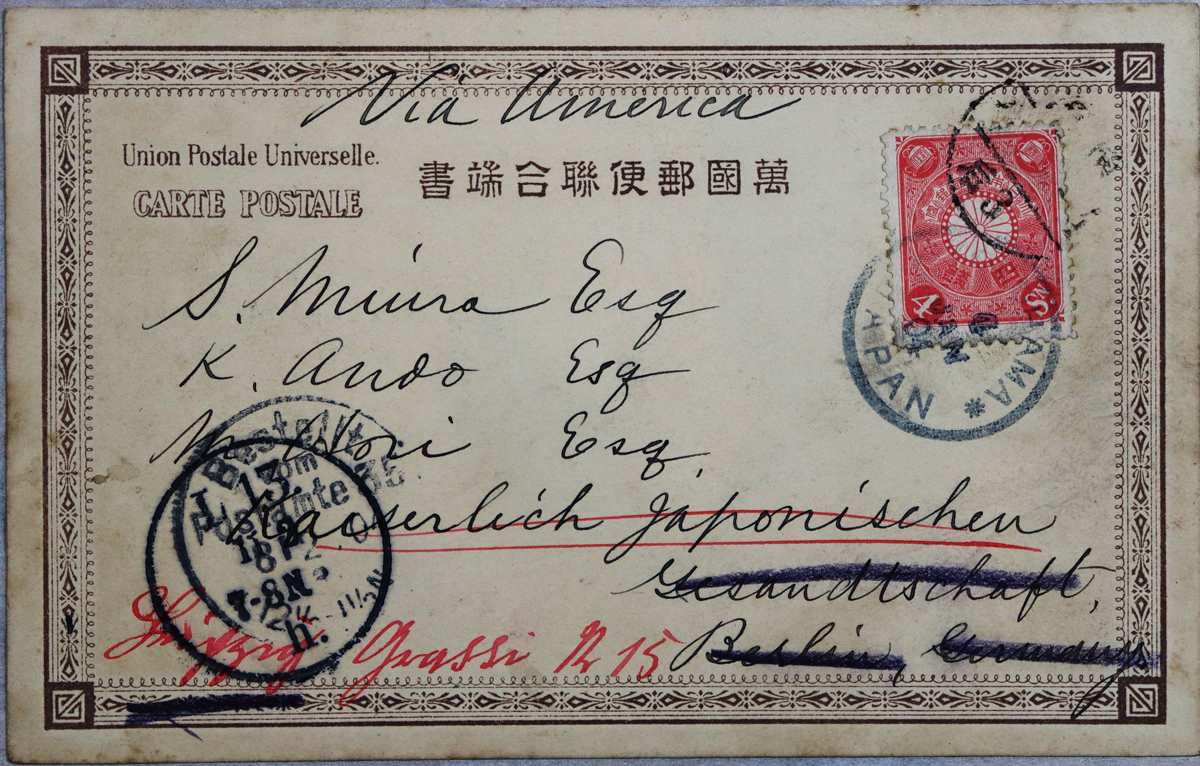 Via America
Union Postale Universelle.
CARTE POSTALE
萬國郵便聯合端書
S. Miura Esq
K. Ando Esq
Mori Esq,
Kaiserlich Japonischen
Gesandtschaft,
Berlin, Germany
Leipzig Grassi 15
4 Sn
JAPAN
JAN
Bestellt
vom
Postamte 35
13.
7-8N
h.